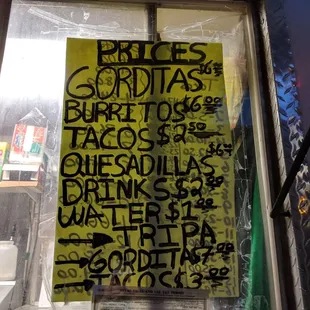 PRICES
GORDITAS $6.00
BURRITOS $6.00
TACOS $2.50
QUESADILLAS $6.00
DRINKS $2.50
WATER $1.00
TRIPA
GORDITA $7.00
TACOS $3.00